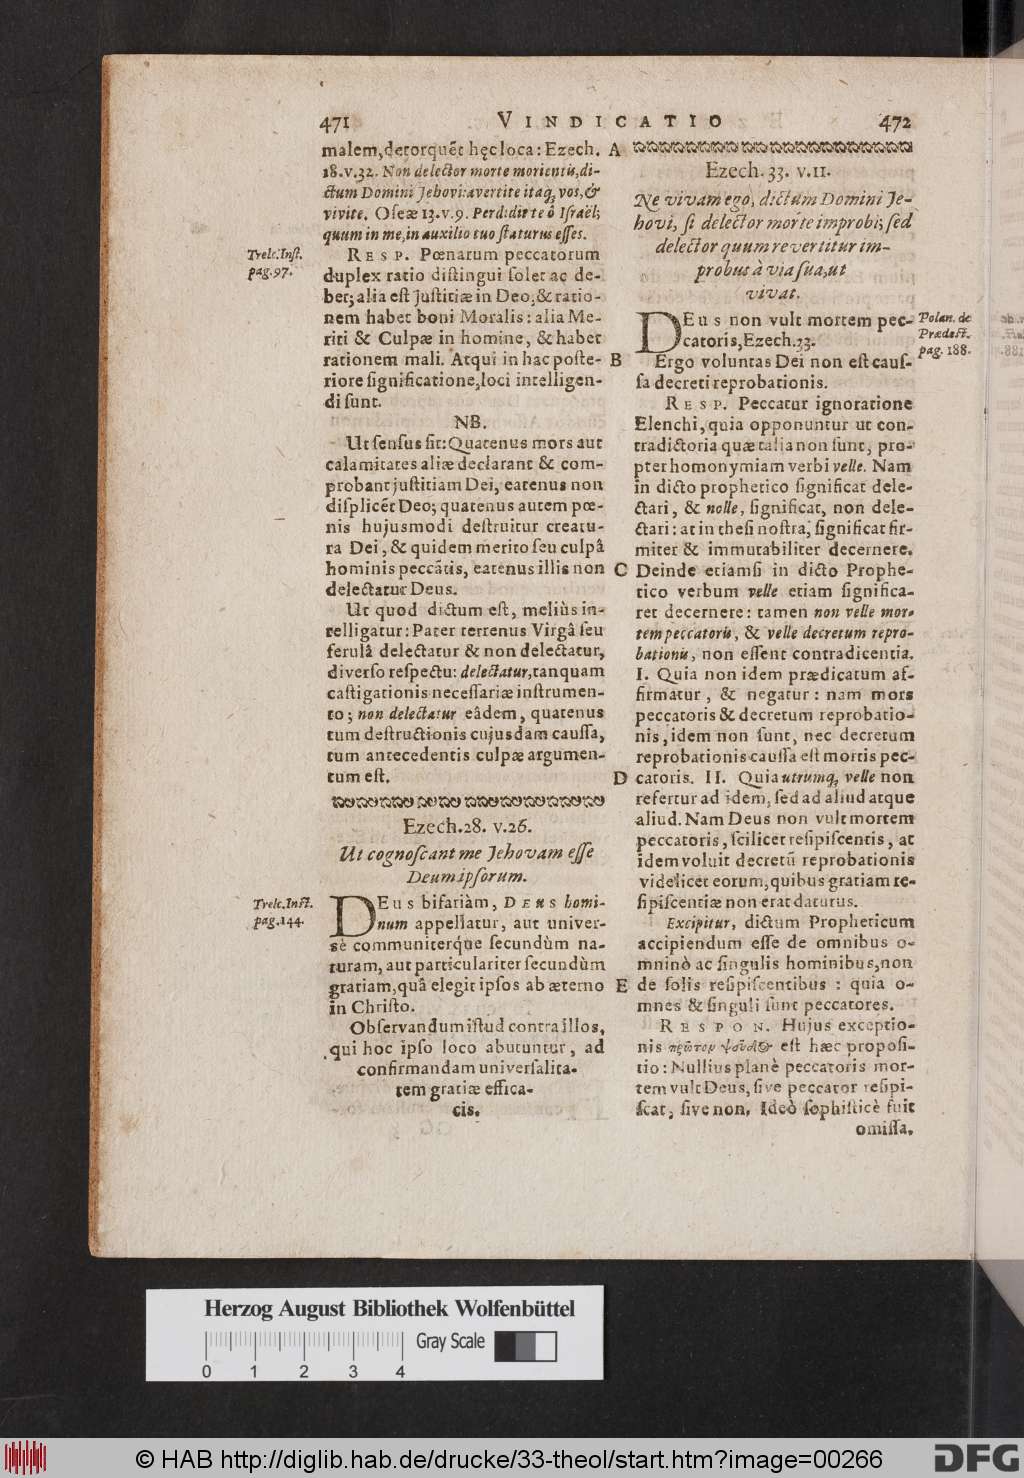 471 VINDICATIO 472
malem, detorquēt hęc loca: Ezech.
18. v. 32. Non delector morte morientis, di-
ctum Domini Jehovi: avertite itaq; vos, &
vivite. Oseæ 13. v. 9. Perdidit te ô Israël;
quum in me, in auxilio tuo staturus esses.
Trelc. Inst.
pag. 97.
RESP. Pœnarum peccatorum
duplex ratio distingui solet ac de-
bet; alia est Justitiæ in Deo, & ratio-
nem habet boni Moralis: alia Me-
riti & Culpæ in homine, & habet
rationem mali. Atqui in hac poste-
riore significatione, loci intelligen-
di sunt.
NB.
Ut sensus sit: Quatenus mors aut
calamitates aliæ declarant & com-
probant justitiam Dei, eatenus non
displicēt Deo; quatenus autem pœ-
nis hujusmodi destruitur creatu-
ra Dei, & quidem merito seu culpâ
hominis peccātis, eatenus illis non
delectatur Deus.
Ut quod dictum est, meliùs in-
telligatur: Pater terrenus Virgâ seu
ferulâ delectatur & non delectatur,
diverso respectu: delectatur, tanquam
castigationis necessariæ instrumen-
to; non delectatur eâdem, quatenus
tum destructionis cujusdam caussa,
tum antecedentis culpæ argumen-
tum est.
Ezech. 28. v. 26.
Ut cognoscant me Jehovam esse
Deum ipsorum.
Trelc. Inst.
pag. 144.
DEus bifariàm, DEUS homi-
num appellatur, aut univer-
sè communiterq́ue secundùm na-
turam, aut particulariter secundùm
gratiam, quâ elegit ipsos ab æterno
in Christo.
Observandum istud contra illos,
qui hoc ipso loco abutuntur, ad
confirmandam universalita-
tem gratiæ effica-
cis.
A
B
C
D
E
Ezech. 33. v. 11.
Ne vivam ego, dictum Domini Je-
hovi, si delector morte improbi; sed
delector quum revertitur im-
probus à via sua, ut
vivat.
Polan. de
Prædest.
pag. 188.
DEus non vult mortem pec-
catoris, Ezech. 33.
Ergo voluntas Dei non est caus-
sa decreti reprobationis.
RESP. Peccatur ignoratione
Elenchi, quia opponuntur ut con-
tradictoria quæ talia non sunt, pro-
pter homonymiam verbi velle. Nam
in dicto prophetico significat dele-
ctari, & nolle, significat, non dele-
ctari: at in thesi nostra, significat fir-
miter & immutabiliter decernere.
Deinde etiamsi in dicto Prophe-
tico verbum velle etiam significa-
ret decernere: tamen non velle mor-
tem peccatoris, & velle decretum repro-
bationis, non essent contradicentia.
I. Quia non idem prædicatum af-
firmatur, & negatur: nam mors
peccatoris & decretum reprobatio-
nis, idem non sunt, nec decretum
reprobationis caussa est mortis pec-
catoris. II. Quia utrumq; velle non
refertur ad idem, sed ad aliud atque
aliud. Nam Deus non vult mortem
peccatoris, scilicet resipiscentis, at
idem voluit decretū reprobationis
videlicet eorum, quibus gratiam re-
sipiscentiæ non erat daturus.
Excipitur, dictum Propheticum
accipiendum esse de omnibus o-
mninò ac singulis hominibus, non
de solis resipiscentibus: quia o-
mnes & singuli sunt peccatores.
RESPON. Hujus exceptio-
nis πρῶτον ψεῦδος est hæc proposi-
tio: Nullius planè peccatoris mor-
tem vult Deus, sive peccator resipi-
scat, sive non. Ideò sophisticè fuit
omissa.
Herzog August Bibliothek Wolfenbüttel
Gray Scale
0 1 2 3 4
© HAB http://diglib.hab.de/drucke/33-theol/start.htm?image=00266
DFG